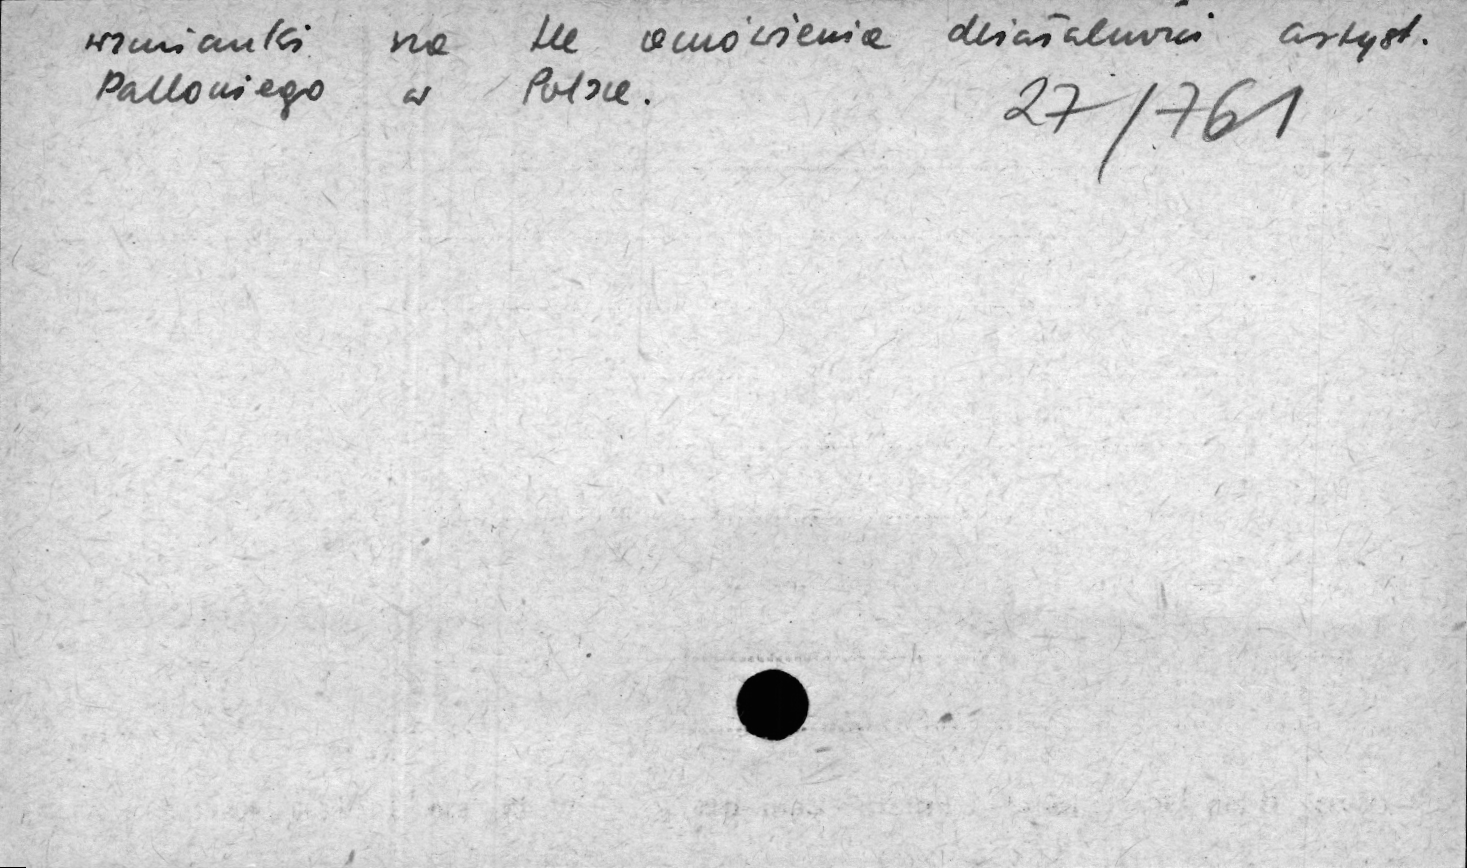 wzmianki na tle omówienia działalności artyst.
Palloniego w Polsce.
27/761